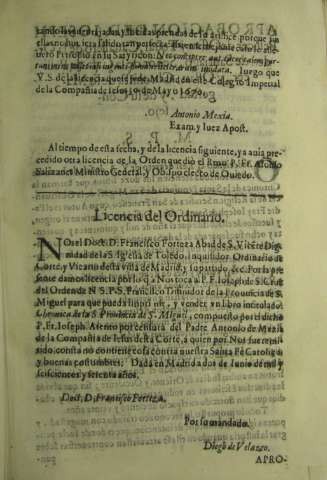 luego que
V.S. de la licencia que se pide. Madrid en este Colegio Imperial
de la Compañia de Iesus 30 de Mayo 1670.
Antonio Mexia.
Exam. y Iuez Apost.
Al tiempo de esta fecha, y de la licencia siguiente, ya auia pre-
cedido otra licencia de la Orden que diò el Rmo P. Fr. Alonso
Salizanes Ministro General, y Obispo electo de Ouiedo.
Licencia del Ordinario.
NOs el Doct. D. Francisco Forteza Abad de S. Vicẽte Dig-
nidad de la S. Iglesia de Toledo, Inquisidor Ordinario de
Corte, y Vicario desta villa de Madrid, y su partido &c. Por la pre-
sente damos licencia por lo q̃ a Nos toca a P. F. Ioseph de S. Cruz
del Orden de N. S. P. S. Francisco Difinidor de la Prouincia de S.
Miguel para que pueda imprimir, y vender vn libro intitulado
Chronica de la S. Prouincia de S. Miguel, compuesto por el dicho
P. Fr. Ioseph. Atento por censura del Padre Antonio de Mexia
de la Compañia de Iesus desta Corte, a quien por Nos fue remi-
tido, consta no contiene cosa contra nuestra Santa Fè Catolica
y buenas costumbres. Dada en Madrid a dos de Iunio de mil y
seiscientos y setenta años.
Doct. D. Francisco Forteza.
Por su mandado.
Diego de Velasco.
APRO-